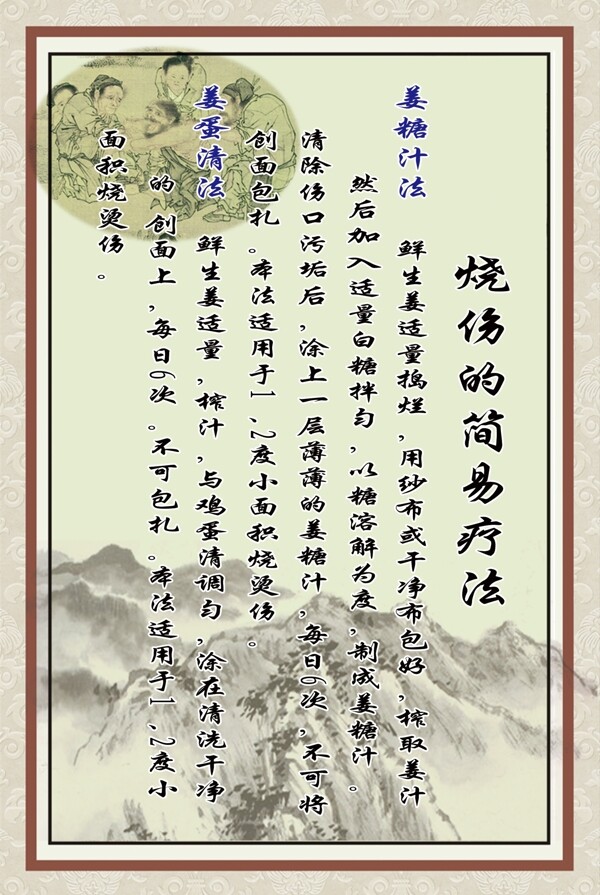 烧伤的简易疗法
姜糖汁法 鲜生姜适量捣烂，用纱布或干净布包好，榨取姜汁
然后加入适量白糖拌匀，以糖溶解为度，制成姜糖汁。
清除伤口污垢后，涂上一层薄薄的姜糖汁，每日6次，不可将
创面包扎。本法适用于1、2度小面积烧烫伤。
姜蛋清法 鲜生姜适量，榨汁，与鸡蛋清调匀，涂在清洗干净
的创面上，每日6次。不可包扎。本法适用于1、2度小
面积烧烫伤。